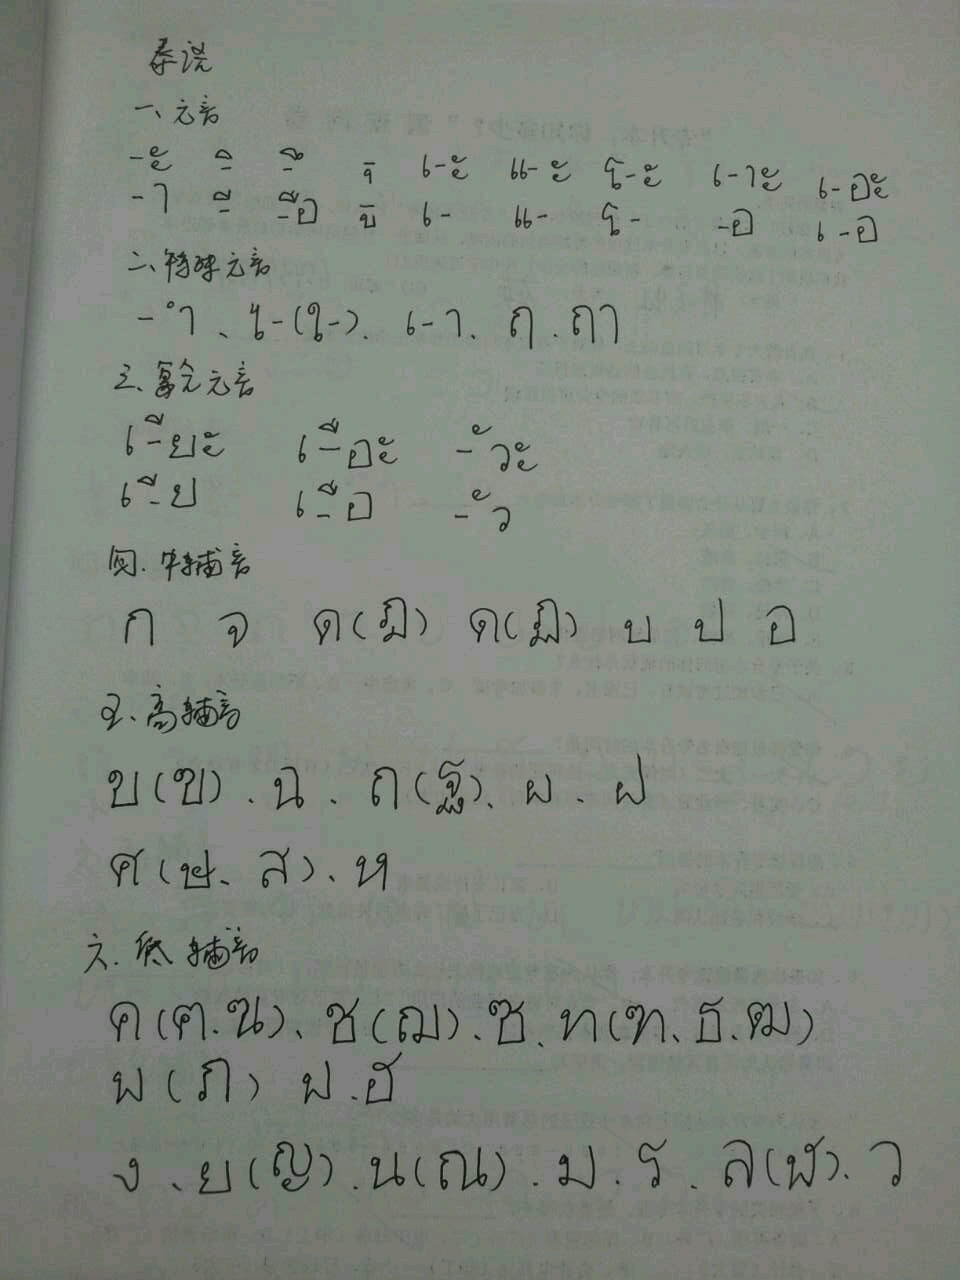 泰语
一、元音
-ะ -ิ -ึ -ุ เ-ะ แ-ะ โ-ะ เ-าะ เ-อะ
-า -ี -ือ -ู เ- แ- โ- -อ เ-อ
二、特殊元音
-ำ、ไ-(ใ-)、เ-า、ฤ、ฤๅ
三、复合元音
เ-ียะ เ-ือะ -ัวะ
เ-ีย เ-ือ -ัว
四、中辅音
ก จ ด(ฎ) ต(ฏ) บ ป อ
五、高辅音
ข(ฃ)、ฉ、ถ(ฐ)、ผ、ฝ
ศ(ษ、ส)、ห
六、低辅音
ค(ฅ.ฆ)、ช(ฌ).ซ.ท(ฑ.ธ.ฒ)
พ(ภ) ฟ.ฮ
ง、ย(ญ).น(ณ).ม.ร.ล(ฬ).ว